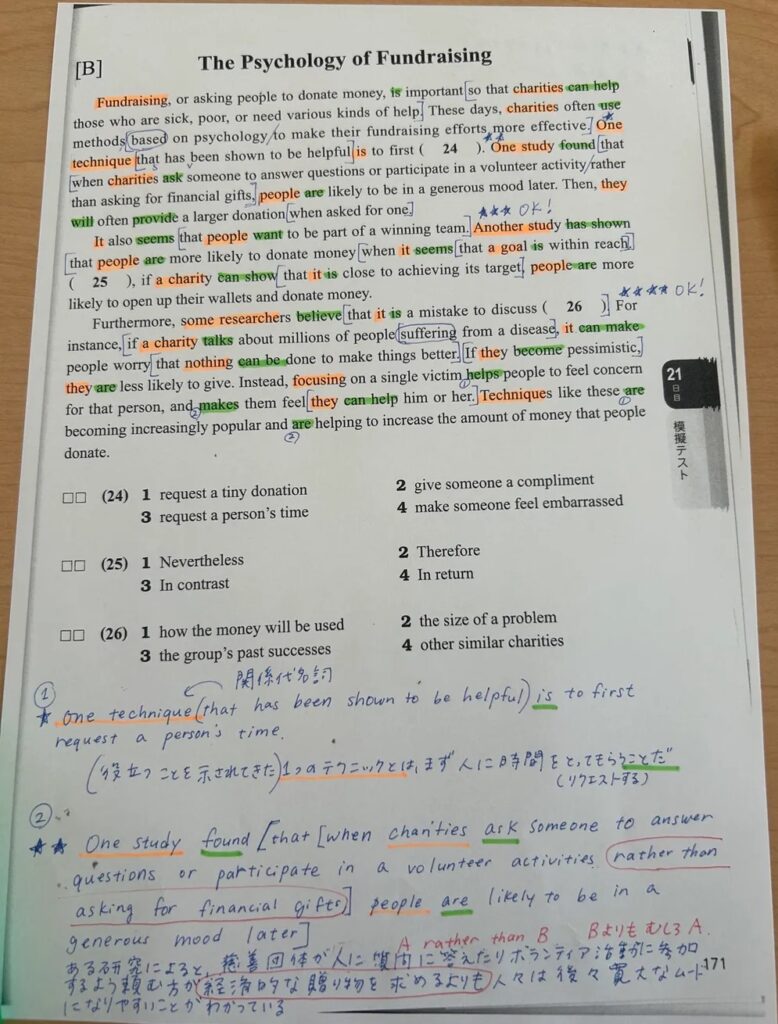 [B]
The Psychology of Fundraising
Fundraising, or asking people to donate money, is important so that charities can help
those who are sick, poor, or need various kinds of help. These days, charities often use
methods based on psychology to make their fundraising efforts more effective. One
technique that has been shown to be helpful is to first ( 24 ). One study found that
when charities ask someone to answer questions or participate in a volunteer activity rather
than asking for financial gifts, people are likely to be in a generous mood later. Then, they
will often provide a larger donation when asked for one.
★★★ OK!
It also seems that people want to be part of a winning team. Another study has shown
that people are more likely to donate money when it seems that a goal is within reach.
( 25 ), if a charity can show that it is close to achieving its target, people are more
likely to open up their wallets and donate money.
★★★★ OK!
Furthermore, some researchers believe that it is a mistake to discuss ( 26 ). For
instance, if a charity talks about millions of people suffering from a disease, it can make
people worry that nothing can be done to make things better. If they become pessimistic,
they are less likely to give. Instead, focusing on a single victim helps people to feel concern
for that person, and makes them feel they can help him or her. Techniques like these are
becoming increasingly popular and are helping to increase the amount of money that people
donate.
21
日目
模擬テスト
□□ (24) 1 request a tiny donation 2 give someone a compliment
3 request a person's time 4 make someone feel embarrassed
□□ (25) 1 Nevertheless 2 Therefore
3 In contrast 4 In return
□□ (26) 1 how the money will be used 2 the size of a problem
3 the group's past successes 4 other similar charities
① 関係代名詞
★ One technique (that has been shown to be helpful) is to first
request a person's time.
(役立つことを示されてきた) 1つのテクニックとは、まず人に時間をとってもらうことだ
(リクエストする)
②
★★ One study found [that [when charities ask someone to answer
questions or participate in a volunteer activities rather than
asking for financial gifts] people are likely to be in a
generous mood later]
A rather than B BよりもむしろA.
ある研究によると、慈善団体が人に質問に答えたりボランティア活動に参加
するよう頼む方が経済的な贈り物を求めるよりも人々は後々寛大なムード
になりやすいことがわかっている
171